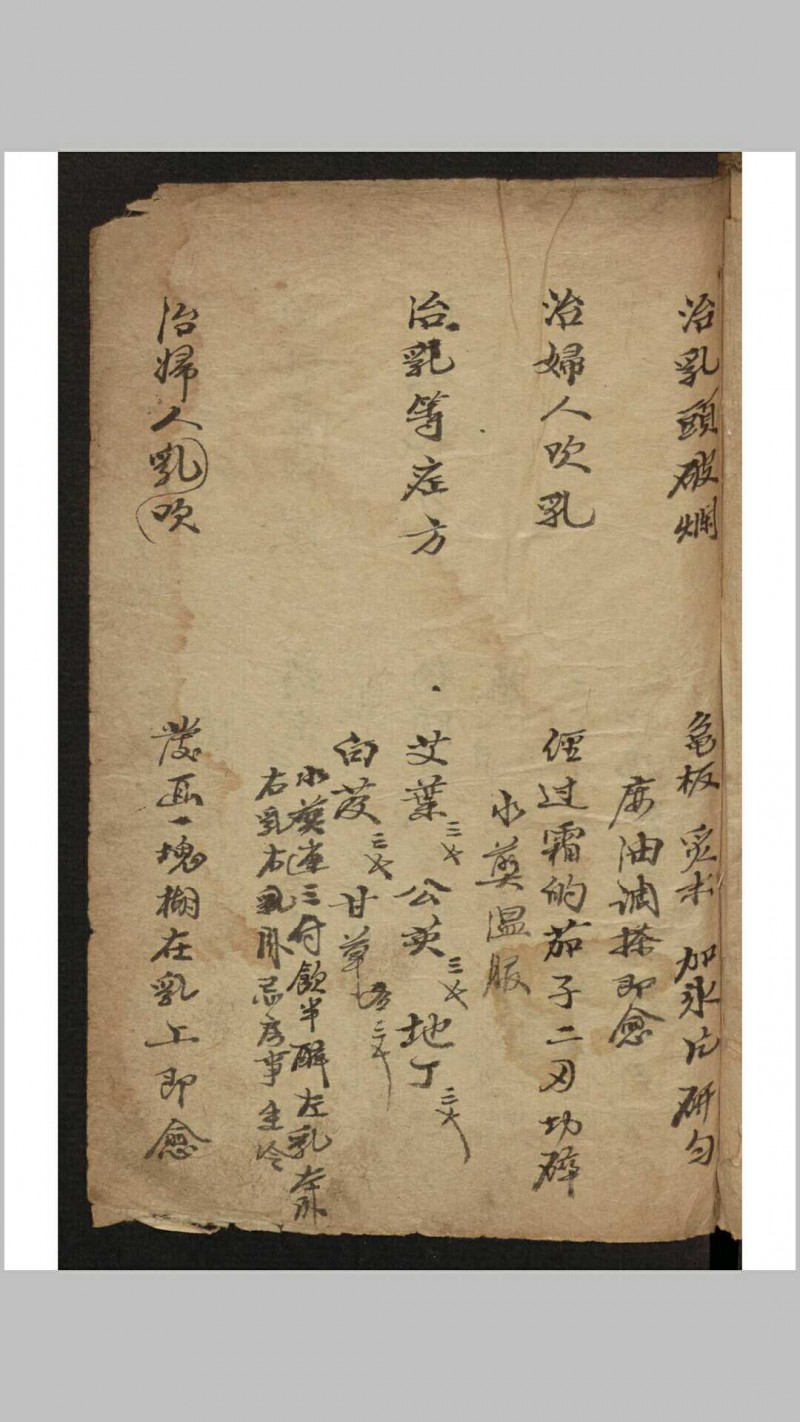 治乳頭破爛
龜板 炙末 加氷片研勻
麻油調搽即愈
治婦人吹乳
經过霜的茄子二刃切碎
水煎温服
治乳等症方
艾葉三钱 公英三钱 地丁三钱
白芨三钱 甘草 三钱
水煎連三付飲半醉左乳左卧
右乳右卧忌房事生冷
治婦人乳吹
發面一塊糊在乳上即愈